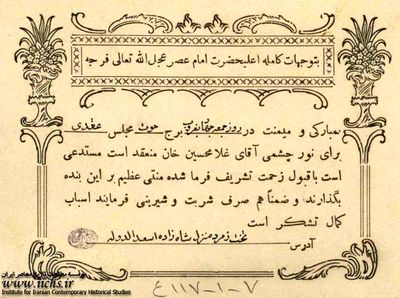 بتوجهات کامله اعلیحضرت امام عصر عجل الله تعالی فرجه
بمبارکی و میمنت در روز جمعه برج حوت مجلس عقدی
برای نور چشمی آقای غلامحسین خان منعقد است مستدعی
است با قبول زحمت تشریف فرما شده منتی عظیم بر این بنده
بگذارند و ضمناً هم صرف شربت و شیرینی فرمایند اسباب
کمال تشکر است
آدرس منزل شاهزاده اسعدالدوله
۱۱۷-۱-۷ ع
موسسه مطالعات تاریخ معاصر ایران
www.iichs.ir
Institute for Iranian Contemporary Historical Studies